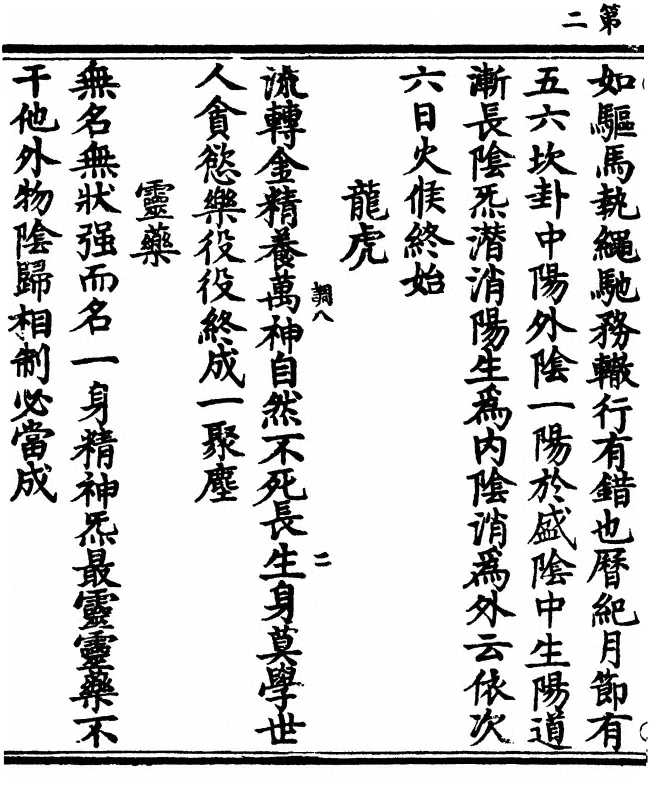 第二
如驅馬執繩馳務轍行有錯也曆紀月節有
五六坎卦中陽外陰一陽於盛陰中生陽道
漸長陰炁潛消陽生爲内陰消爲外云依次
六日火候終始
龍虎
調八
二
流轉金精養萬神自然不死長生身莫學世
人貪慾樂役役終成一聚塵
靈藥
無名無狀强而名一身精神炁最靈靈藥不
干他外物陰歸相制必當成